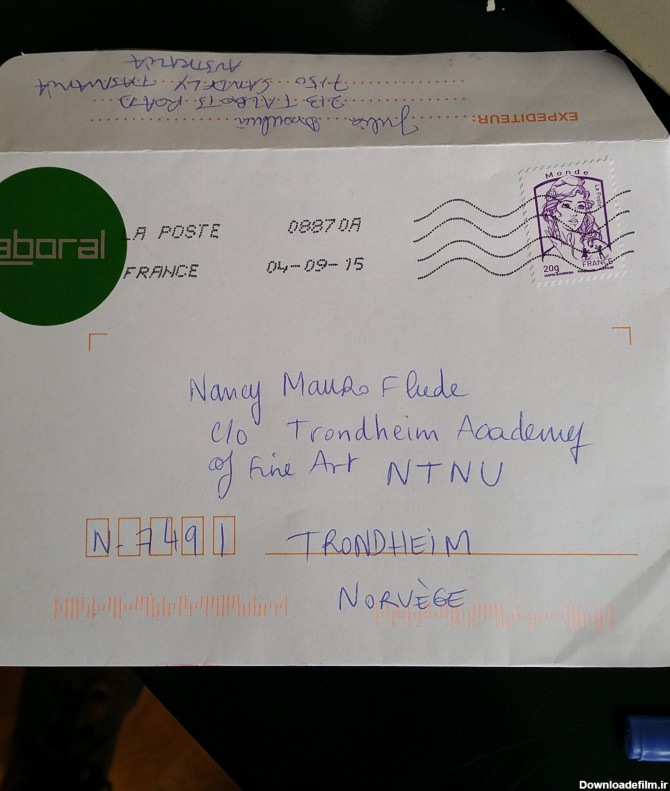 EXPEDITEUR: Julia Drouhin
213 TALBOTS ROAD
7150 SANDFLY TASMANIA
AUSTRALIA
aboral
LA POSTE 08870A
FRANCE 04-09-15
Monde
La Poste
20g
FRANCE
Nancy Mauro Flude
c/o Trondheim Academy
of Fine Art NTNU
N-7491 TRONDHEIM
NORVÈGE
Downloadefilm.ir